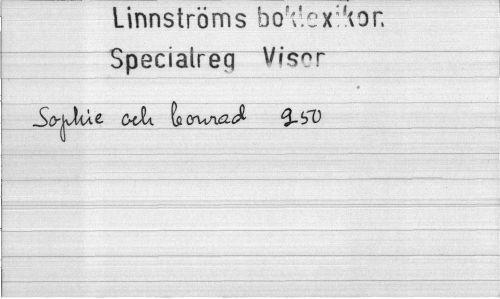 Linnströms boklexikon.
Specialreg Visor
Sophie och Conrad 250